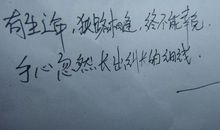 有生之年,狭路相逢,终不能幸免.
手心忽然长出纠缠的曲线.